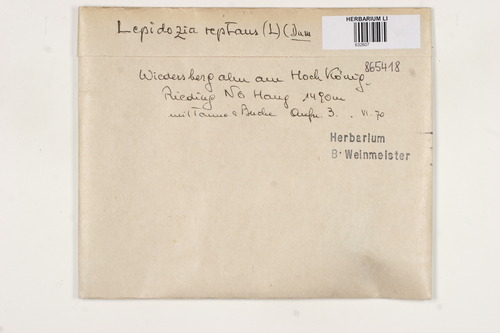 HERBARIUM LI
632607
Lepidozia reptans (L) (Dum
865418
Wiedersbergalm am Hochkönig
Rieding NO Hang 1490m
mit Tanne & Buche Aufn. 3. VI. 70
Herbarium
B. Weinmeister